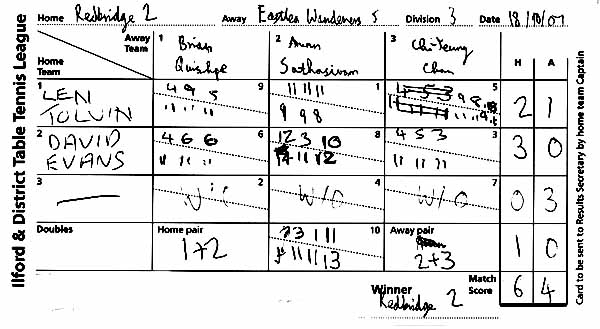 Home Redbridge 2 Away Eastlea Wanderers 5 Division 3 Date 18/10/07
Ilford & District Table Tennis League
Away Team
Home Team
1 Brian Quishpe
2 Arran Sathasivam
3 Chi-Yeung Chan
H A
1 LEN TOLVIN
4 9 5 9
11 11 11
11 11 11 1
9 9 8
5
9 8
2 1
2 DAVID EVANS
4 6 6 6
11 11 11
12 3 10 8
11 12
4 5 3 3
11 11 11
3 0
3 —
2
W/O 4
W/O 7
0 3
Doubles
Home pair
1+2
3 11 10
11 11 13
Away pair
2+3
1 0
Winner
Redbridge 2
Match Score
6 4
Card to be sent to Results Secretary by home team Captain